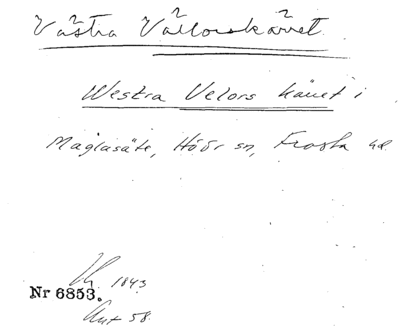 Västra Vällorskärret
Westra Velors käuet i
Maglasäte, Höör sn, Frosta hd.
1843
Nr 6853.
Akt 58.